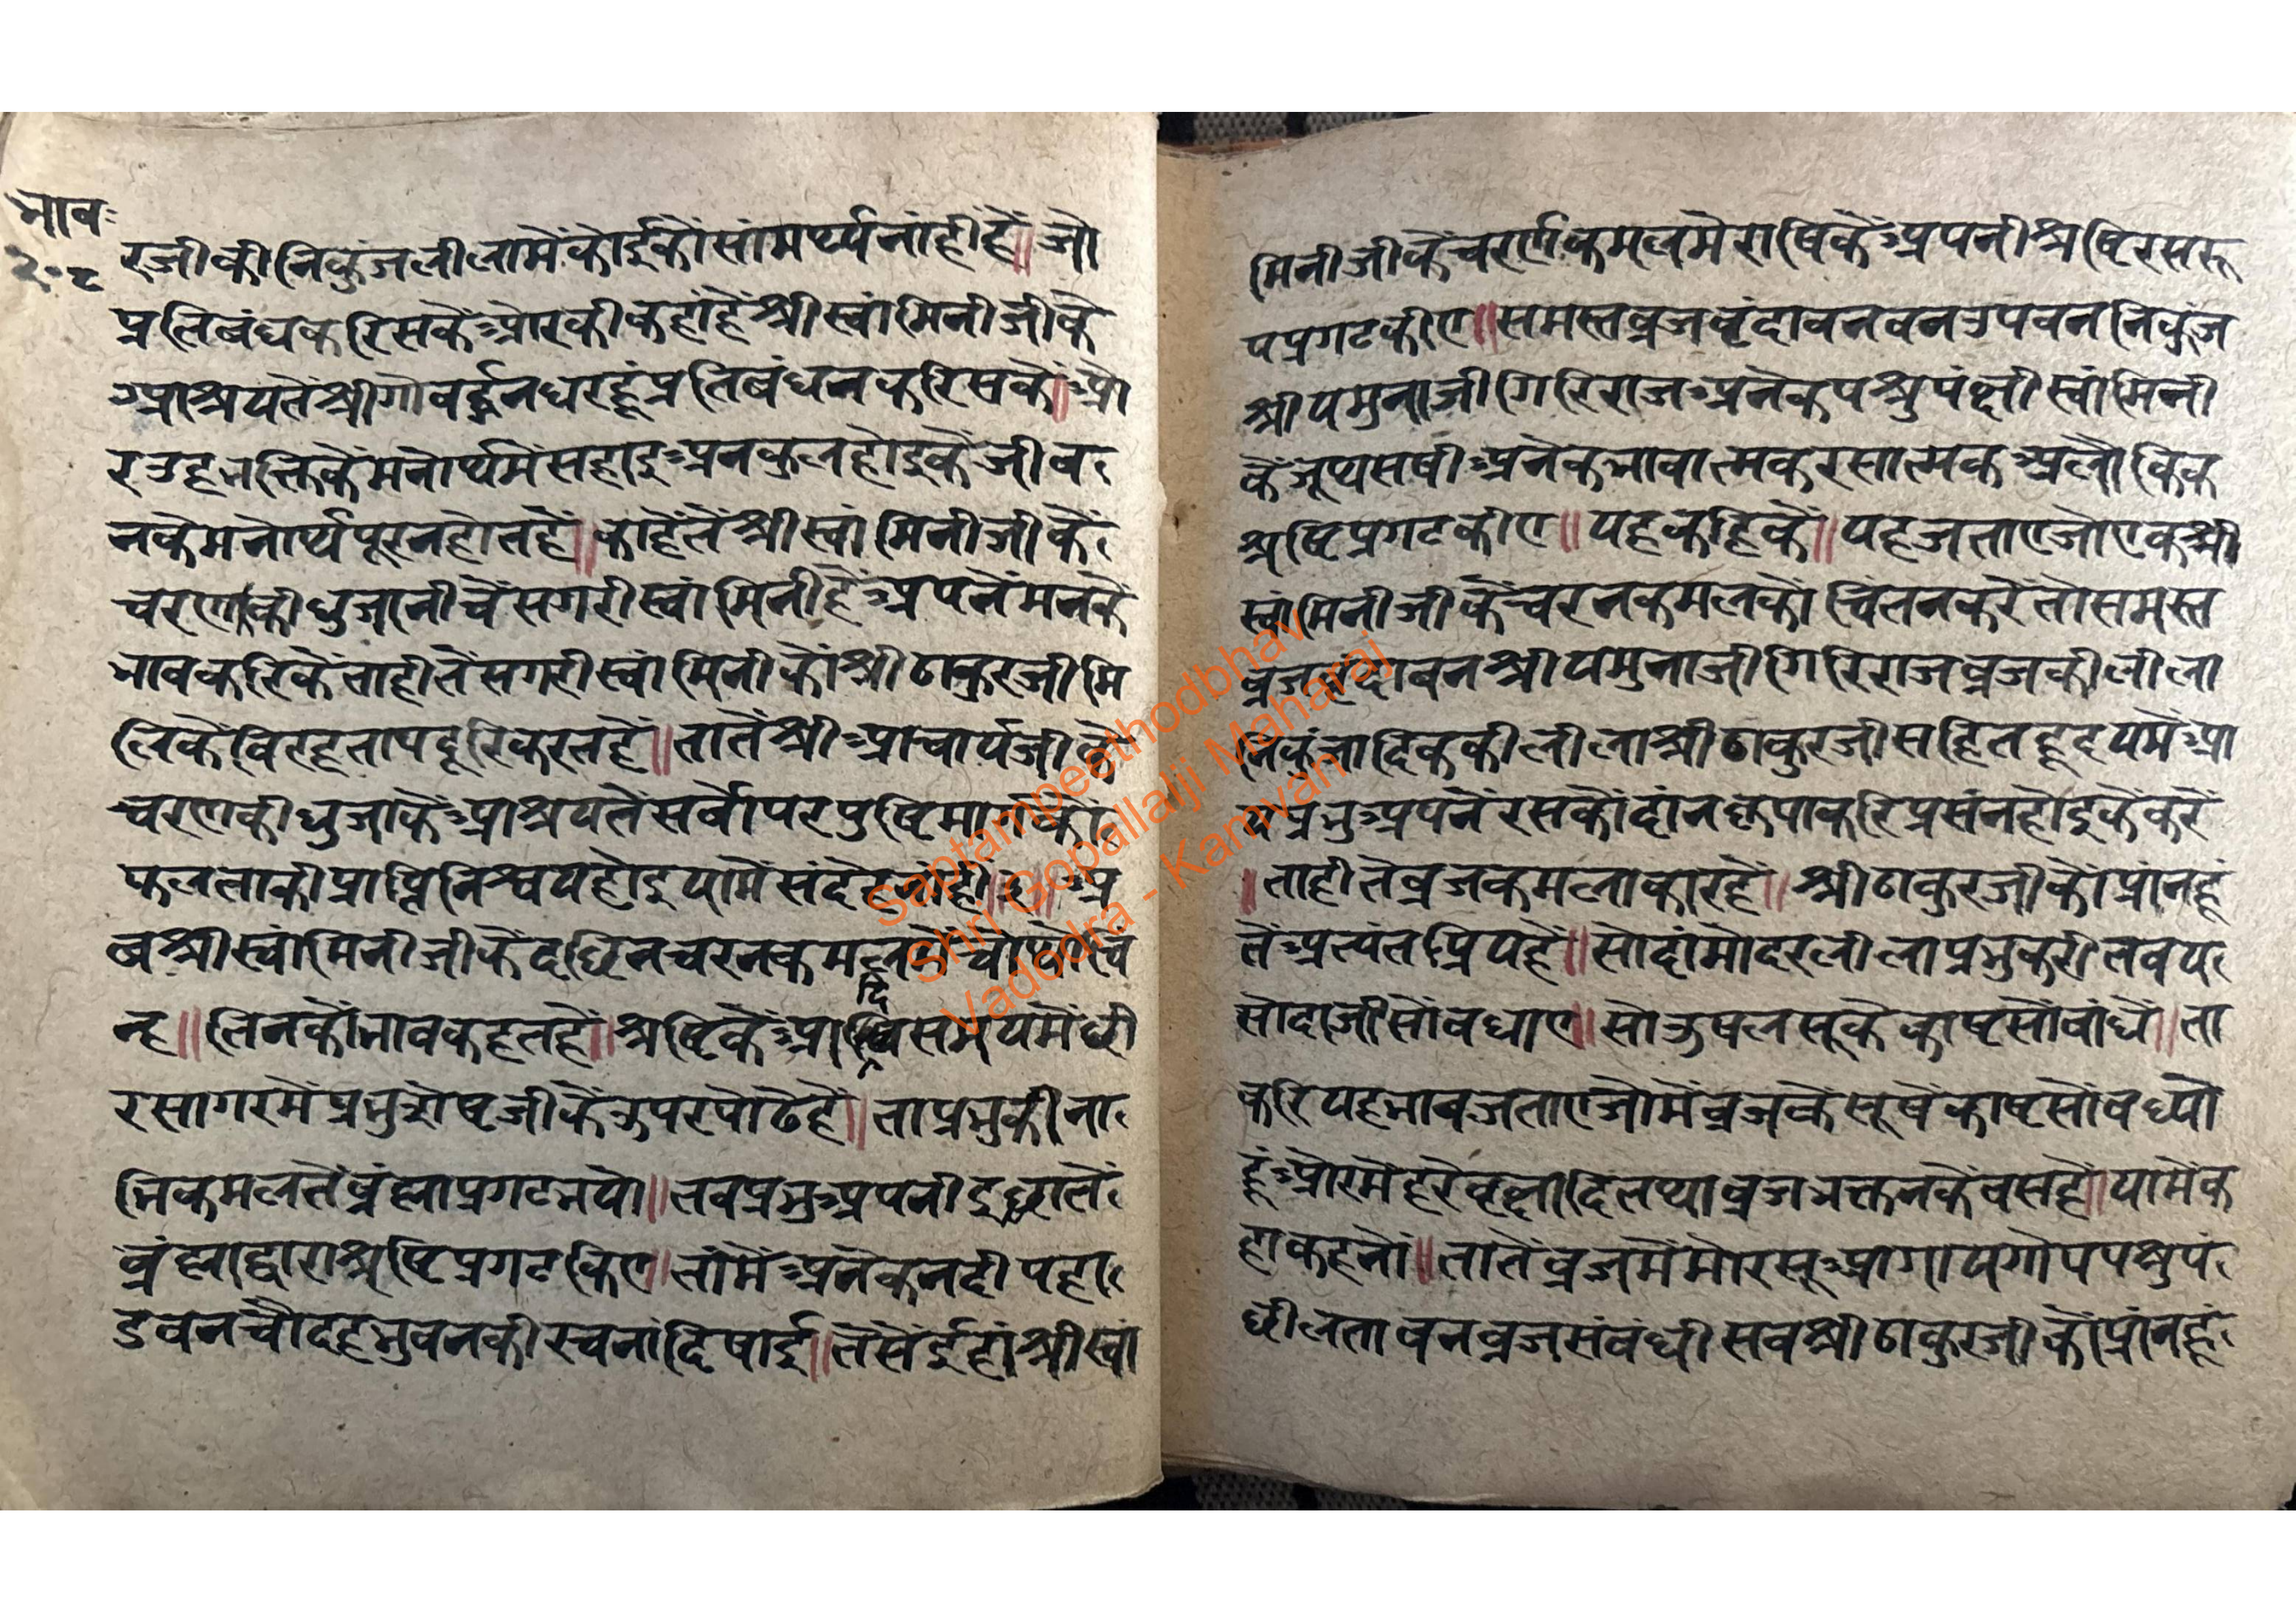 भाव
२०८
रजीकी निकुंजलीलामें कोईकौं सांमर्थ्य नांहीं हैं॥ जो
प्रतिबंधकरिसकें ओरकी कहां हैं श्रीस्वांमिनीजीके
आश्रयतें श्रीगोवर्द्धनधरहूं प्रतिबंध न करिसकें॥ ओ
र उह भक्तिकें मनोर्थमें सहाइ अनकुल होइकें जीव
नके मनोर्थ पूरन होत हैं॥ काहेतें श्रीस्वांमिनीजीकें
चरणकी धुजा नीचें सगरी स्वांमिनी हैं अपनें मनकें
भाव करिकें ताहीतें सगरी स्वांमिनीकों श्रीठाकुरजी मि
लिकें विरहताप दूरि करत हैं॥ तातें श्रीआचार्यजीके
चरणकी धुजाकें आश्रयतें सर्वोपर पुष्टिमार्गकों
फल ताकी प्राप्ति निश्चय होइ यामें संदेह नांहीं॥ अ
ब श्रीस्वांमिनीजीकें दछिन चरनकमलकों चोथो चि
न्ह॥ तिनकौं भाव कहत हैं॥ श्रष्टिकें आदि समयमें छी
रसागरमें प्रभु शेषजीकें उपर पोढे हैं॥ ता प्रभुकी ना
भिकमलतें ब्रंह्मा प्रगट भयो॥ तब प्रभु अपनी इछातें
ब्रंह्माद्वारा श्रष्टि प्रगट किए॥ तांमें अनेक नदी पहा
ड वन चौदह भुवनकी रचनां दिषाई॥ तेंसें ईहां श्रीस्वां
मिनीजीकें चरणकमलमे राषिकें अपनी श्रष्टि रसरू
प प्रगट कीए॥ समस्त व्रज वृंदावन वन उपवन निकुंज
श्रीयमुनाजी गिरिराज अनेक पश्रु पंक्षी स्वांमिनी
कें जूथ्य सषी अनेक भावात्मक रसात्मक अलौकिक
श्रष्टि प्रगट कीए॥ यह कहिकें॥ यह जताए जो एक श्री
स्वांमिनीजीकें चरनकमलकों चिंतन करें तो समस्त
व्रज वृंदावन श्रीयमुनाजी गिरिराज व्रजकी लीला
निकुंजादिककी लीला श्रीठाकुरजी सहित हृदयमें आ
य प्रभु अपनें रसकौं दांन कृपाकरि प्रसंन होइकें करें
॥ ताहीते व्रज कमलाकार हैं॥ श्रीठाकुरजीकों प्रांनहूं
तें अत्यंत प्रिय हैं॥ सो दांमोदरलीला प्रभु करी तब य
सोदाजी सों बधाए॥ सो उषल सूके काष्ट सों बांधें॥ ता
करि यह भाव जताए जो में व्रजके सूषें काष्ट सों बध्यो
हूं ओर में हरे वृक्षादि तथा व्रजभक्तनकें बस हों॥ यामें क
हा कहनों॥ तातें व्रजमें मोर सूआ गाय गोप पश्रु पं
छी लता वन व्रज संबंधी सब श्रीठाकुरजीकों प्रांनहूं
Saptampeethodbhav
Shri Gopallalji Maharaj
Vadodra - Kamvan